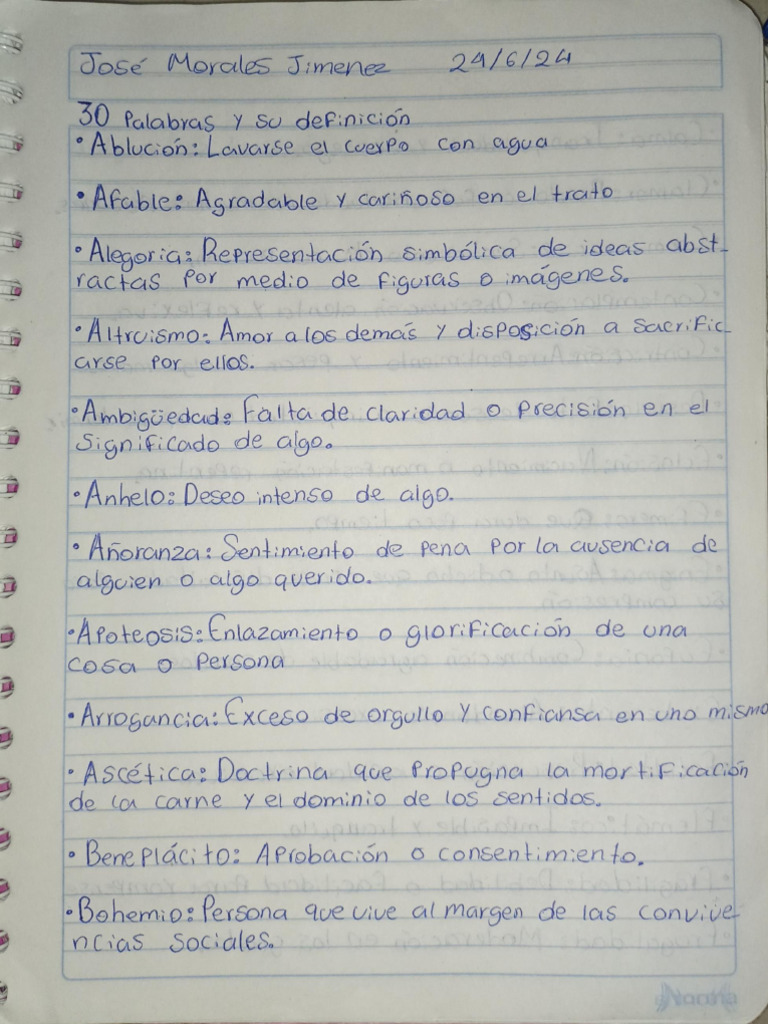 José Morales Jimenez 24/6/24
30 Palabras y su definición
• Ablución: Lavarse el cuerpo con agua
• Afable: Agradable y cariñoso en el trato
• Alegoria: Representación simbólica de ideas abst-
ractas por medio de figuras o imágenes.
• Altruismo: Amor a los demás y disposición a sacrific-
arse por ellos.
• Ambigüedad: Falta de claridad o precisión en el
significado de algo.
• Anhelo: Deseo intenso de algo.
• Añoranza: Sentimiento de pena por la ausencia de
alguien o algo querido.
• Apoteosis: Enlazamiento o glorificación de una
cosa o persona
• Arrogancia: Exceso de orgullo y confiansa en uno mismo
• Ascética: Doctrina que propugna la mortificación
de la carne y el dominio de los sentidos.
• Beneplácito: Aprobación o consentimiento.
• Bohemio: Persona que vive al margen de las convive-
ncias sociales.
Norma